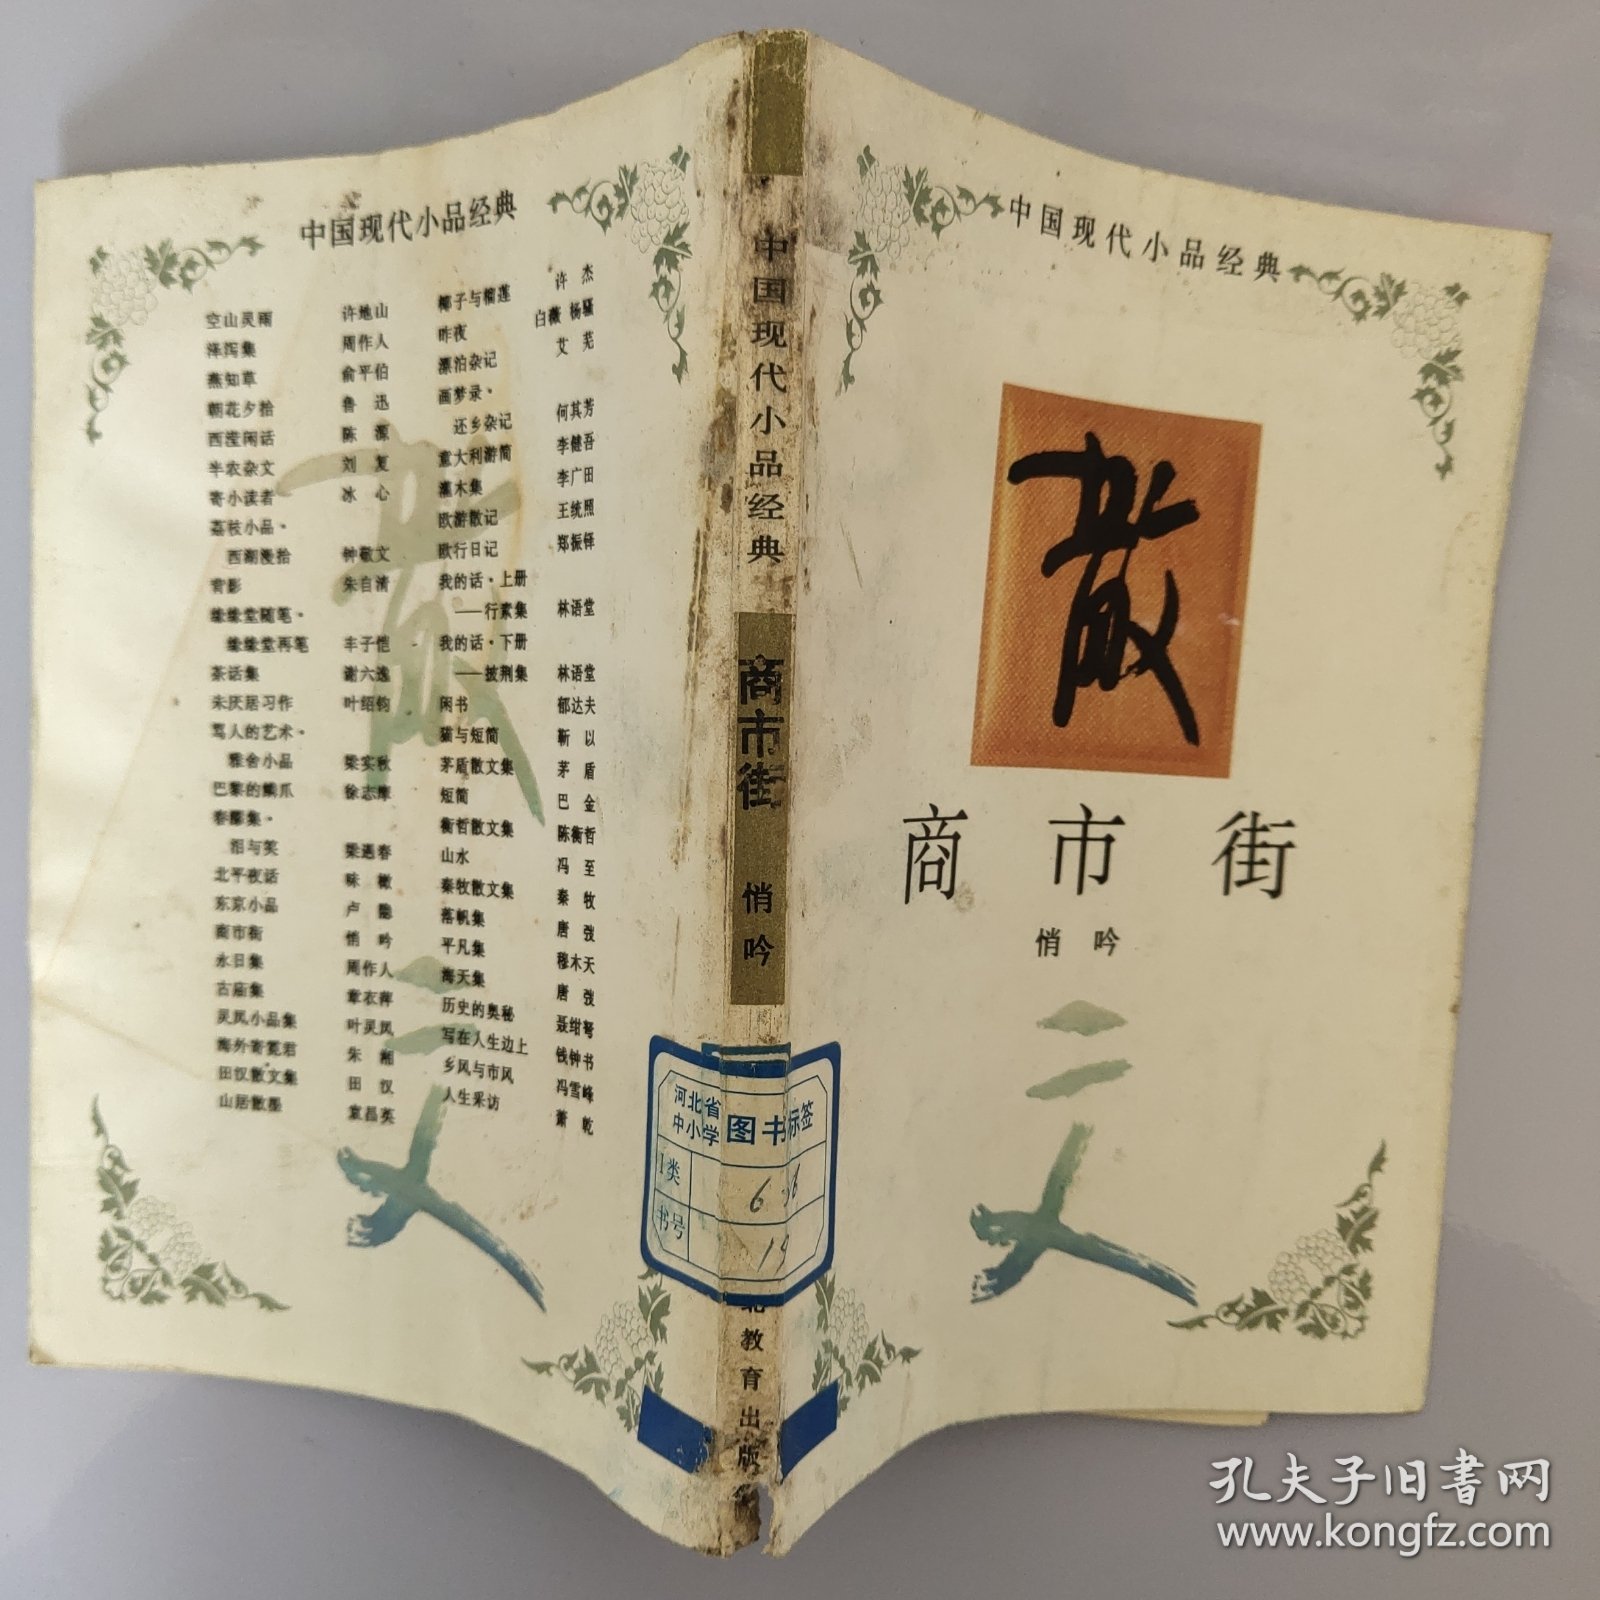 中国现代小品经典
空山灵雨 许地山
泽泻集 周作人
燕知草 俞平伯
朝花夕拾 鲁迅
西滢闲话 陈源
半农杂文 刘复
寄小读者 冰心
荔枝小品·
西湖漫拾 钟敬文
背影 朱自清
缘缘堂随笔·
缘缘堂再笔 丰子恺
茶话集 谢六逸
未厌居习作 叶绍钧
骂人的艺术·
雅舍小品 梁实秋
巴黎的鳞爪 徐志摩
春醪集·
泪与笑 梁遇春
北平夜话 味橄
东京小品 卢隐
商市街 悄吟
永日集 周作人
古庙集 章衣萍
灵凤小品集 叶灵凤
海外寄霓君 朱湘
田汉散文集 田汉
山居散墨 袁昌英
椰子与榴莲 许杰
昨夜 白薇 杨骚
漂泊杂记 艾芜
画梦录·
还乡杂记 何其芳
意大利游简 李健吾
灌木集 李广田
欧游散记 王统照
欧行日记 郑振铎
我的话·上册
——行素集 林语堂
我的话·下册
——披荆集 林语堂
闲书 郁达夫
猫与短简 靳以
茅盾散文集 茅盾
短简 巴金
衡哲散文集 陈衡哲
山水 冯至
秦牧散文集 秦牧
落帆集 唐弢
平凡集 穆木天
海天集 唐弢
历史的奥秘 聂绀弩
写在人生边上 钱钟书
乡风与市风 冯雪峰
人生采访 萧乾
中国现代小品经典
商市街
悄吟
河北省
中小学
图书标签
I类 6
书号
北教育出版
中国现代小品经典
散
商市街
悄吟
孔夫子旧书网
www.kongfz.com